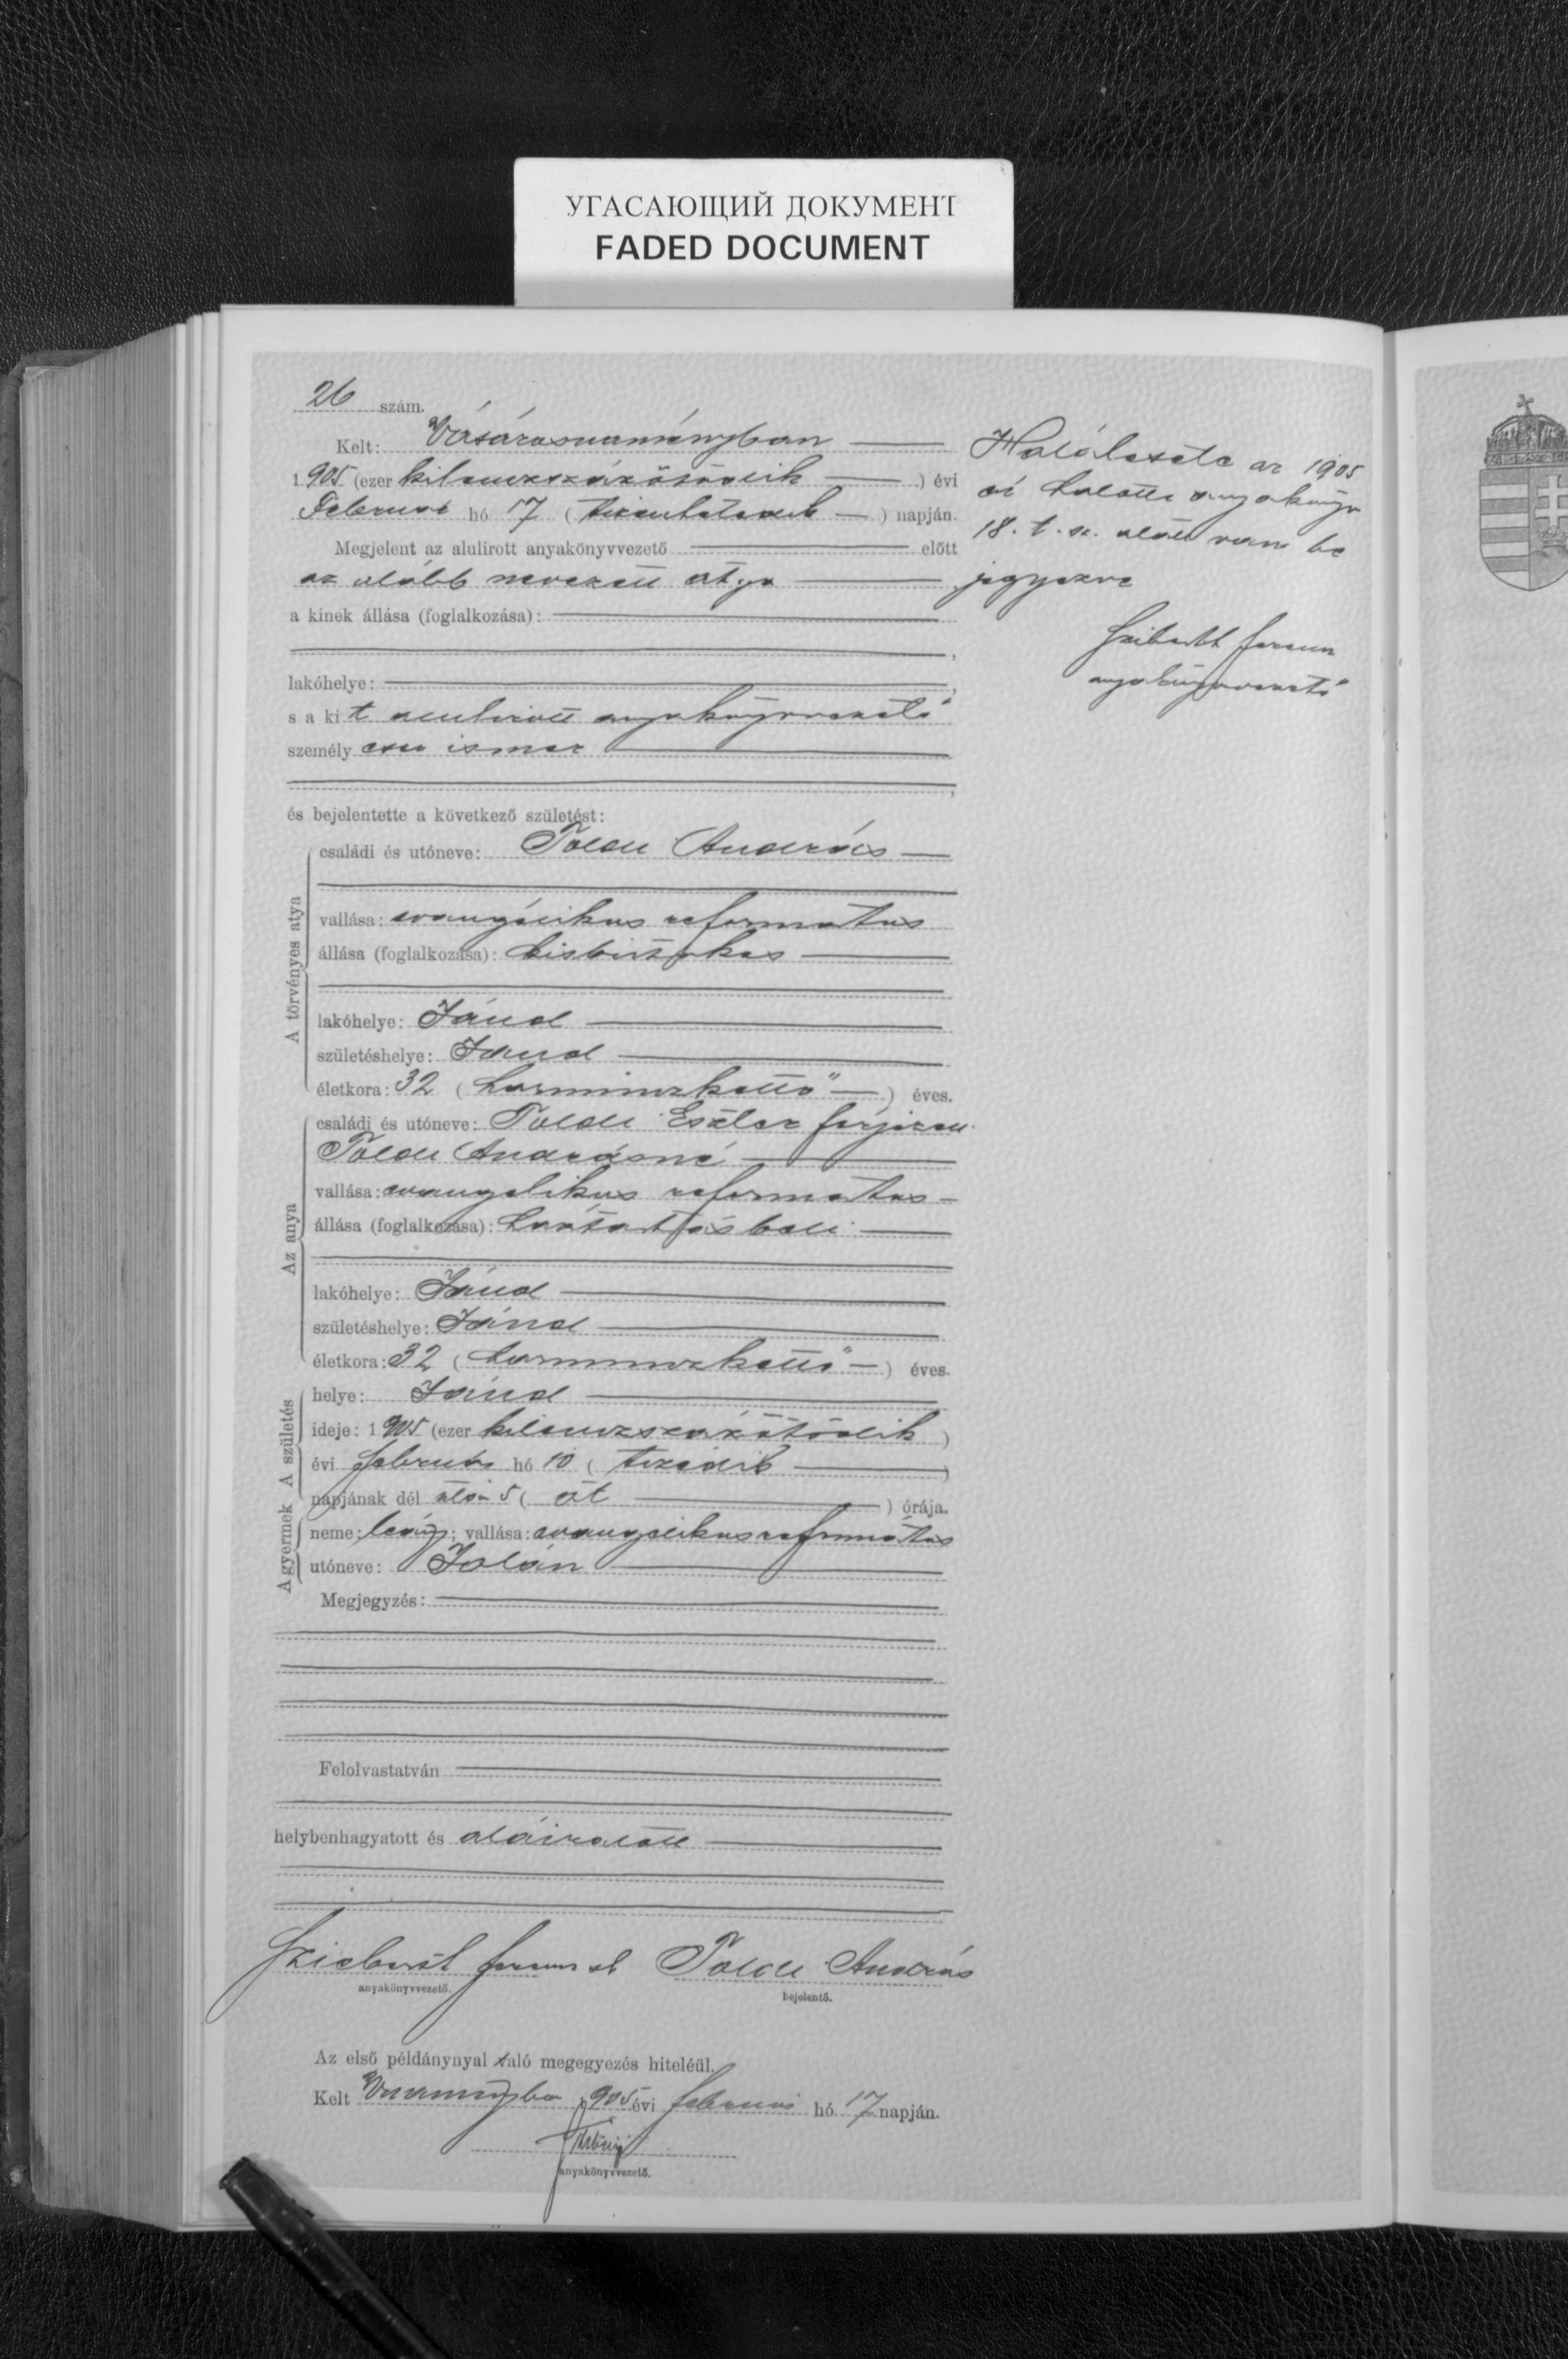 УГАСАЮЩИЙ ДОКУМЕНТ
FADED DOCUMENT
26 szám.
Kelt: Vásárosnaményban
1905 (ezer kilenczszázötödik) évi
Február hó 17 (tizenhetedik) napján.
Megjelent az alulirott anyakönyvvezető előtt
az alább nevezett atya
a kinek állása (foglalkozása):
lakóhelye:
s a kit alulirott anyakönyvvezető
személyesen ismer
és bejelentette a következő születést:
A törvényes atya
családi és utóneve: Toldi András
vallása: evangélikus református
állása (foglalkozása): kisbirtokos
lakóhelye: Jánd
születéshelye: Jánd
életkora: 32 (harminczkettő) éves.
Az anya
családi és utóneve: Toldi Eszter férjezett
Toldi Andrásné
vallása: evangelikus református
állása (foglalkozása): háztartásbeli
lakóhelye: Jánd
születéshelye: Jánd
életkora: 32 (harminczkettő) éves.
A születés
helye: Jánd
ideje: 1905 (ezer kilenczszázötödik)
évi február hó 10 (tizedik)
napjának dél előtti 5 (öt) órája.
A gyermek
neme: leány; vallása: evangelikus református
utóneve: Jolán
Megjegyzés:
Felolvastatván
helybenhagyatott és aláiratott
Toldi András
anyakönyvvezető.
bejelentő.
Az első példánynyal való megegyezés hiteléül.
Kelt 905 évi február hó 17 napján.
anyakönyvvezető.
Halálesete az 1905
évi halotti anyakönyv
18. f. sz. alatt van be
jegyezve
anyakönyvvezető